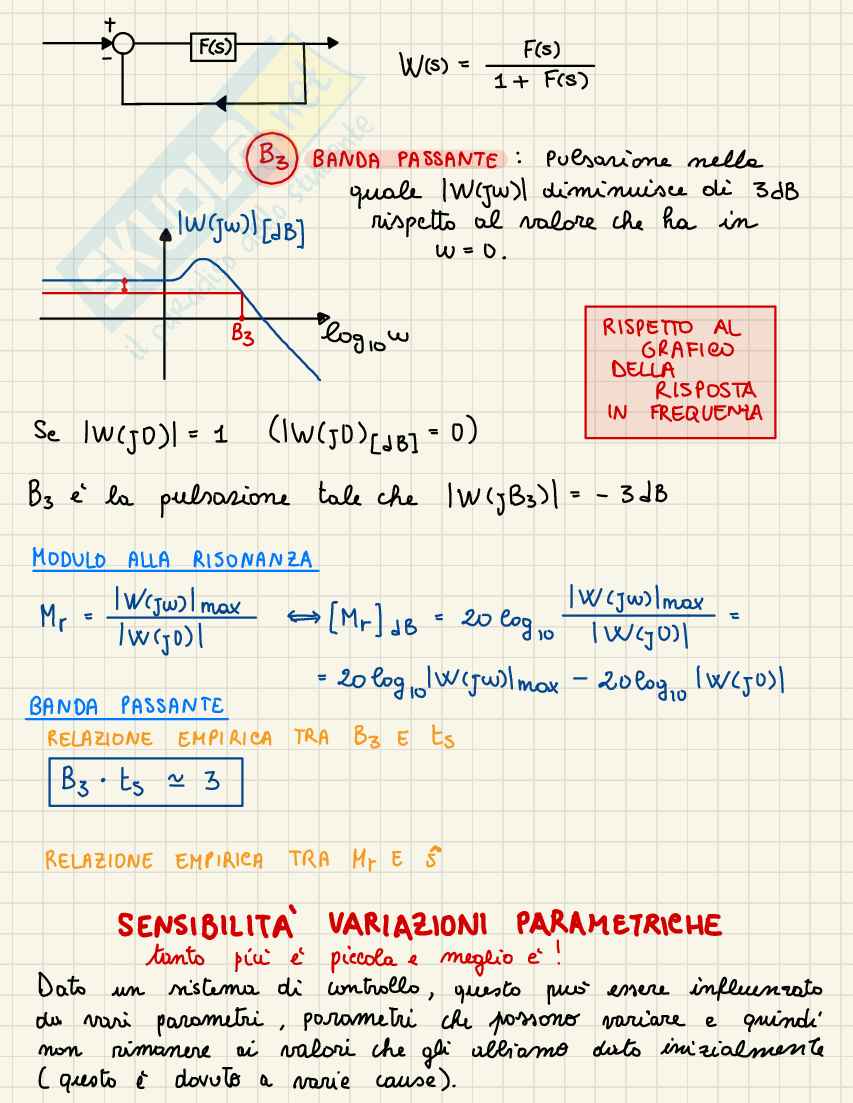 +
-
F(s)
W(s) = F(s) / 1 + F(s)
SKUOLA.net
il paradiso dello studente
B₃ BANDA PASSANTE : Pulsazione nella
quale |W(jw)| diminuisce di 3dB
rispetto al valore che ha in
w = 0.
|W(jw)|[dB]
B₃
log₁₀w
RISPETTO AL
GRAFICO
DELLA
RISPOSTA
IN FREQUENZA
Se |W(j0)| = 1 (|W(j0)[dB] = 0)
B₃ è la pulsazione tale che |W(jB₃)| = - 3dB
MODULO ALLA RISONANZA
Mr = |W(jw)|max / |W(j0)| ⟺ [Mr]dB = 20 log₁₀ |W(jw)|max / |W(j0)| =
= 20 log₁₀|W(jw)|max - 20log₁₀ |W(j0)|
BANDA PASSANTE
RELAZIONE EMPIRICA TRA B₃ E ts
B₃ · ts ≃ 3
RELAZIONE EMPIRICA TRA Mr E ŝ
SENSIBILITA' VARIAZIONI PARAMETRICHE
tanto più è piccola e meglio è!
Dato un sistema di controllo, questo può essere influenzato
da vari parametri, parametri che possono variare e quindi
non rimanere ai valori che gli abbiamo dato inizialmente
(questo è dovuto a varie cause).